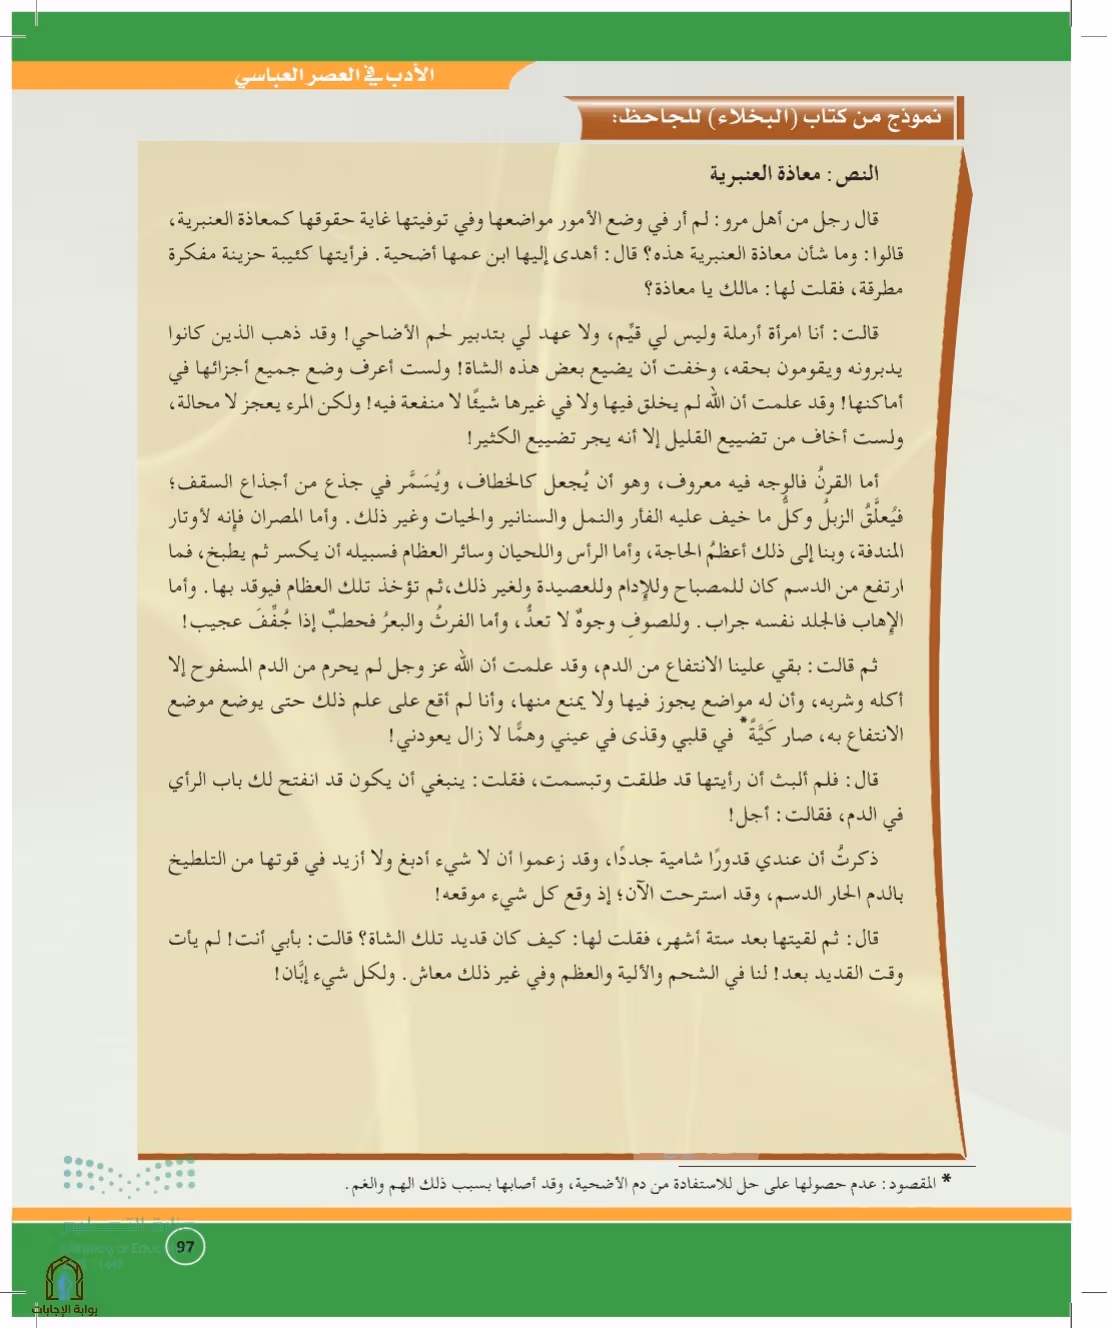 الأدب في العصر العباسي
نموذج من كتاب (البخلاء) للجاحظ:
النص: معاذة العنبرية
قال رجل من أهل مرو: لم أر في وضع الأمور مواضعها وفي توفيتها غاية حقوقها كمعاذة العنبرية،
قالوا: وما شأن معاذة العنبرية هذه؟ قال: أهدى إليها ابن عمها أضحية. فرأيتها كئيبة حزينة مفكرة
مطرقة، فقلت لها: مالك يا معاذة؟
قالت: أنا امرأة أرملة وليس لي قيِّم، ولا عهد لي بتدبير لحم الأضاحي! وقد ذهب الذين كانوا
يدبرونه ويقومون بحقه، وخفت أن يضيع بعض هذه الشاة! ولست أعرف وضع جميع أجزائها في
أماكنها! وقد علمت أن الله لم يخلق فيها ولا في غيرها شيئًا لا منفعة فيه! ولكن المرء يعجز لا محالة،
ولست أخاف من تضييع القليل إلا أنه يجر تضييع الكثير!
أما القرنُ فالوجه فيه معروف، وهو أن يُجعل كالخطاف، ويُسَمَّر في جذع من أجذاع السقف؛
فيُعلَّقُ الزبلُ وكلُّ ما خيف عليه الفأر والنمل والسنانير والحيات وغير ذلك. وأما المصران فإنه لأوتار
المندفة، وبنا إلى ذلك أعظمُ الحاجة، وأما الرأس واللحيان وسائر العظام فسبيله أن يكسر ثم يطبخ، فما
ارتفع من الدسم كان للمصباح وللإدام وللعصيدة ولغير ذلك،ثم تؤخذ تلك العظام فيوقد بها. وأما
الإهاب فالجلد نفسه جراب. وللصوفِ وجوهٌ لا تعدُّ، وأما الفرثُ والبعرُ فحطبٌ إذا جُفِّفَ عجيب!
ثم قالت: بقي علينا الانتفاع من الدم، وقد علمت أن الله عز وجل لم يحرم من الدم المسفوح إلا
أكله وشربه، وأن له مواضع يجوز فيها ولا يمنع منها، وأنا لم أقع على علم ذلك حتى يوضع موضع
الانتفاع به، صار كَيَّةً* في قلبي وقذى في عيني وهمًّا لا زال يعودني!
قال: فلم ألبث أن رأيتها قد طلقت وتبسمت، فقلت: ينبغي أن يكون قد انفتح لك باب الرأي
في الدم، فقالت: أجل!
ذكرتُ أن عندي قدورًا شامية جددًا، وقد زعموا أن لا شيء أدبغ ولا أزيد في قوتها من التلطيخ
بالدم الحار الدسم، وقد استرحت الآن؛ إذ وقع كل شيء موقعه!
قال: ثم لقيتها بعد ستة أشهر، فقلت لها: كيف كان قديد تلك الشاة؟ قالت: بأبي أنت! لم يأت
وقت القديد بعد! لنا في الشحم والألية والعظم وفي غير ذلك معاش. ولكل شيء إبَّان!
* المقصود: عدم حصولها على حل للاستفادة من دم الأضحية، وقد أصابها بسبب ذلك الهم والغم.
وزارة التعليم
Ministry of
97
1447
بوابة الإجابات